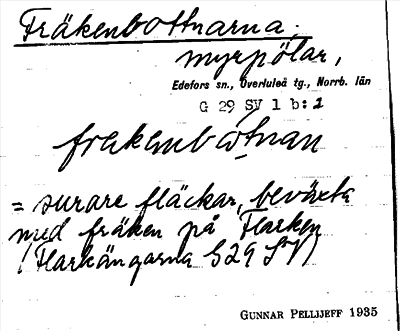 Fräkenbottnarna,
myrpölar,
Edefors sn., Överluleå tg., Norrb. län
G 29 SV 1 b:1
frakənbòtnan
= surare fläckar, beväxta
med fräken på Flarken
(Flarkängarna G29 SV)
GUNNAR PELLIJEFF 1935